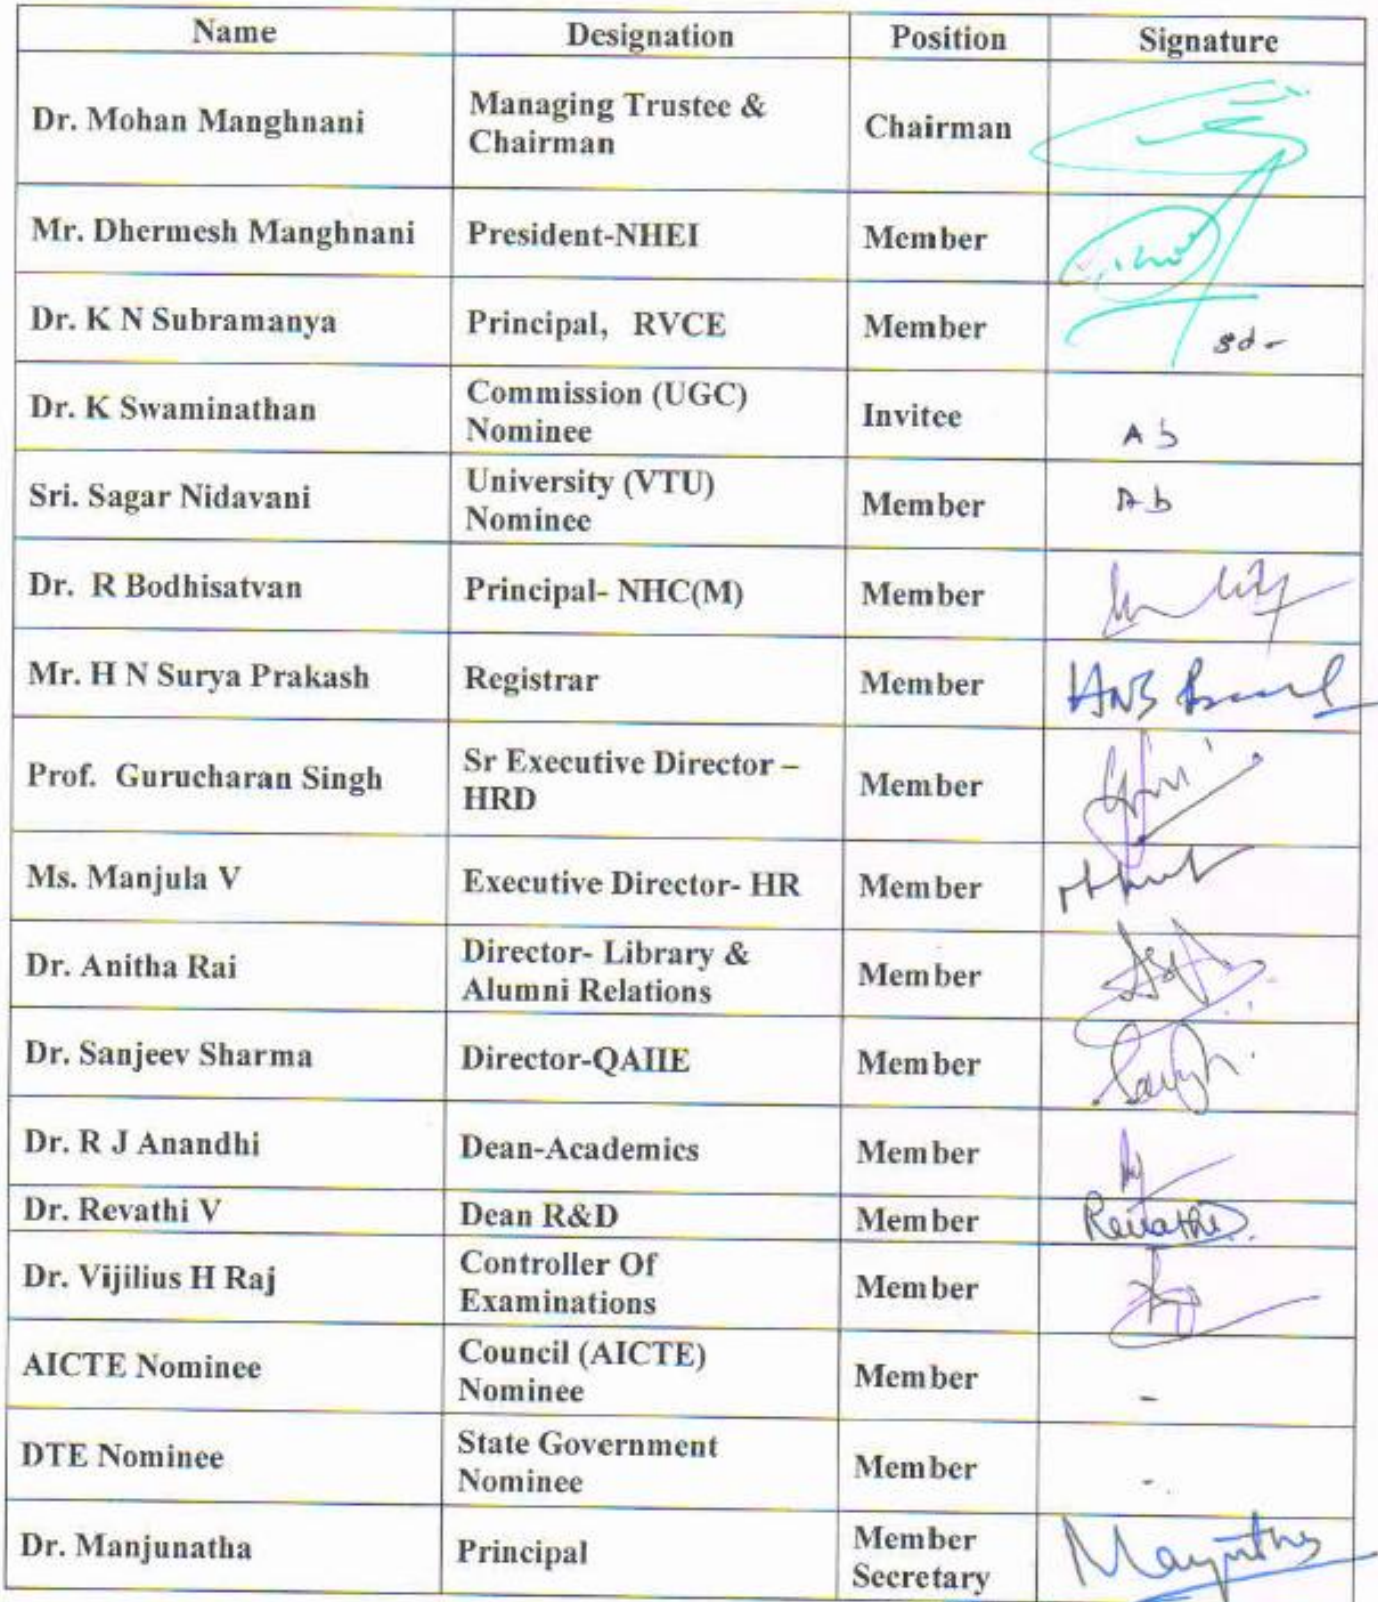 Name Designation Position Signature
Dr. Mohan Manghnani Managing Trustee & Chairman
Chairman
Mr. Dhermesh Manghnani President-NHEI Member
Dr. K N Subramanya Principal, RVCE Member sd-
Dr. K Swaminathan Commission (UGC) Invitee Ab
Nominee
Sri. Sagar Nidavani University (VTU) Member Ab
Nominee
Dr. R Bodhisatvan Principal- NHC(M) Member
Mr. H N Surya Prakash Registrar Member
Prof. Gurucharan Singh Sr Executive Director – Member
HRD
Ms. Manjula V Executive Director- HR Member
Dr. Anitha Rai Director- Library & Member
Alumni Relations
Dr. Sanjeev Sharma Director-QAIIE Member
Dr. R J Anandhi Dean-Academics Member
Dr. Revathi V Dean R&D Member Revathi
Dr. Vijilius H Raj Controller Of Member
Examinations
AICTE Nominee Council (AICTE) Member -
Nominee
DTE Nominee State Government Member -
Nominee
Dr. Manjunatha Principal Member
Secretary